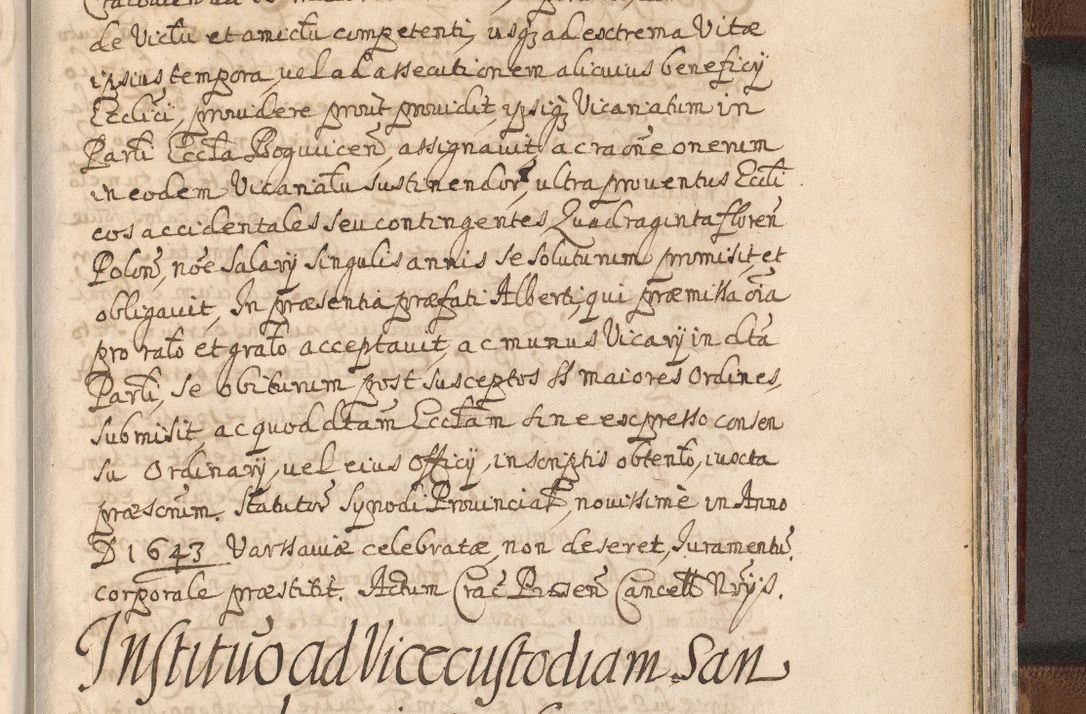 de Victu et amictu competenti, usq3 ad extrema Vitæ
ipsius tempora, vel ad assecutionem alicuius beneficÿ
Ecclici, providere prout providit, ipsiq3 Vicariatum in
Parłi Eccła Boguvicen̄, assignavit, ac raōne onerum
in eodem Vicariatu sustinendor, ultra proventus Eccli
cos accidentales seu contingentes, Quadraginta floren̄
Polon̄, nōe Salarÿ singulis annis se soluturum promisit, et
obligavit, In præsentia præfati Alberti, qui præmissa oīa
pro rato et grato acceptavit, ac munus Vicarÿ in dcta
Parłi, se obiturum post susceptos SS maiores Ordines,
submisit, ac quod dctam Ecclam sine expresso consen
su Ordinarÿ, vel eius Officÿ, in scriptis obtento, iuxta
præscrum. Statutor Synodi Provincial, novissimè in Anno
D 1643 Varssaviæ celebratæ, non deseret, Iuramentu.
corporale præstitit. Actum Crac Præsen̄ Cancell Nrÿs.
Institūo ad Vicecustodiam San